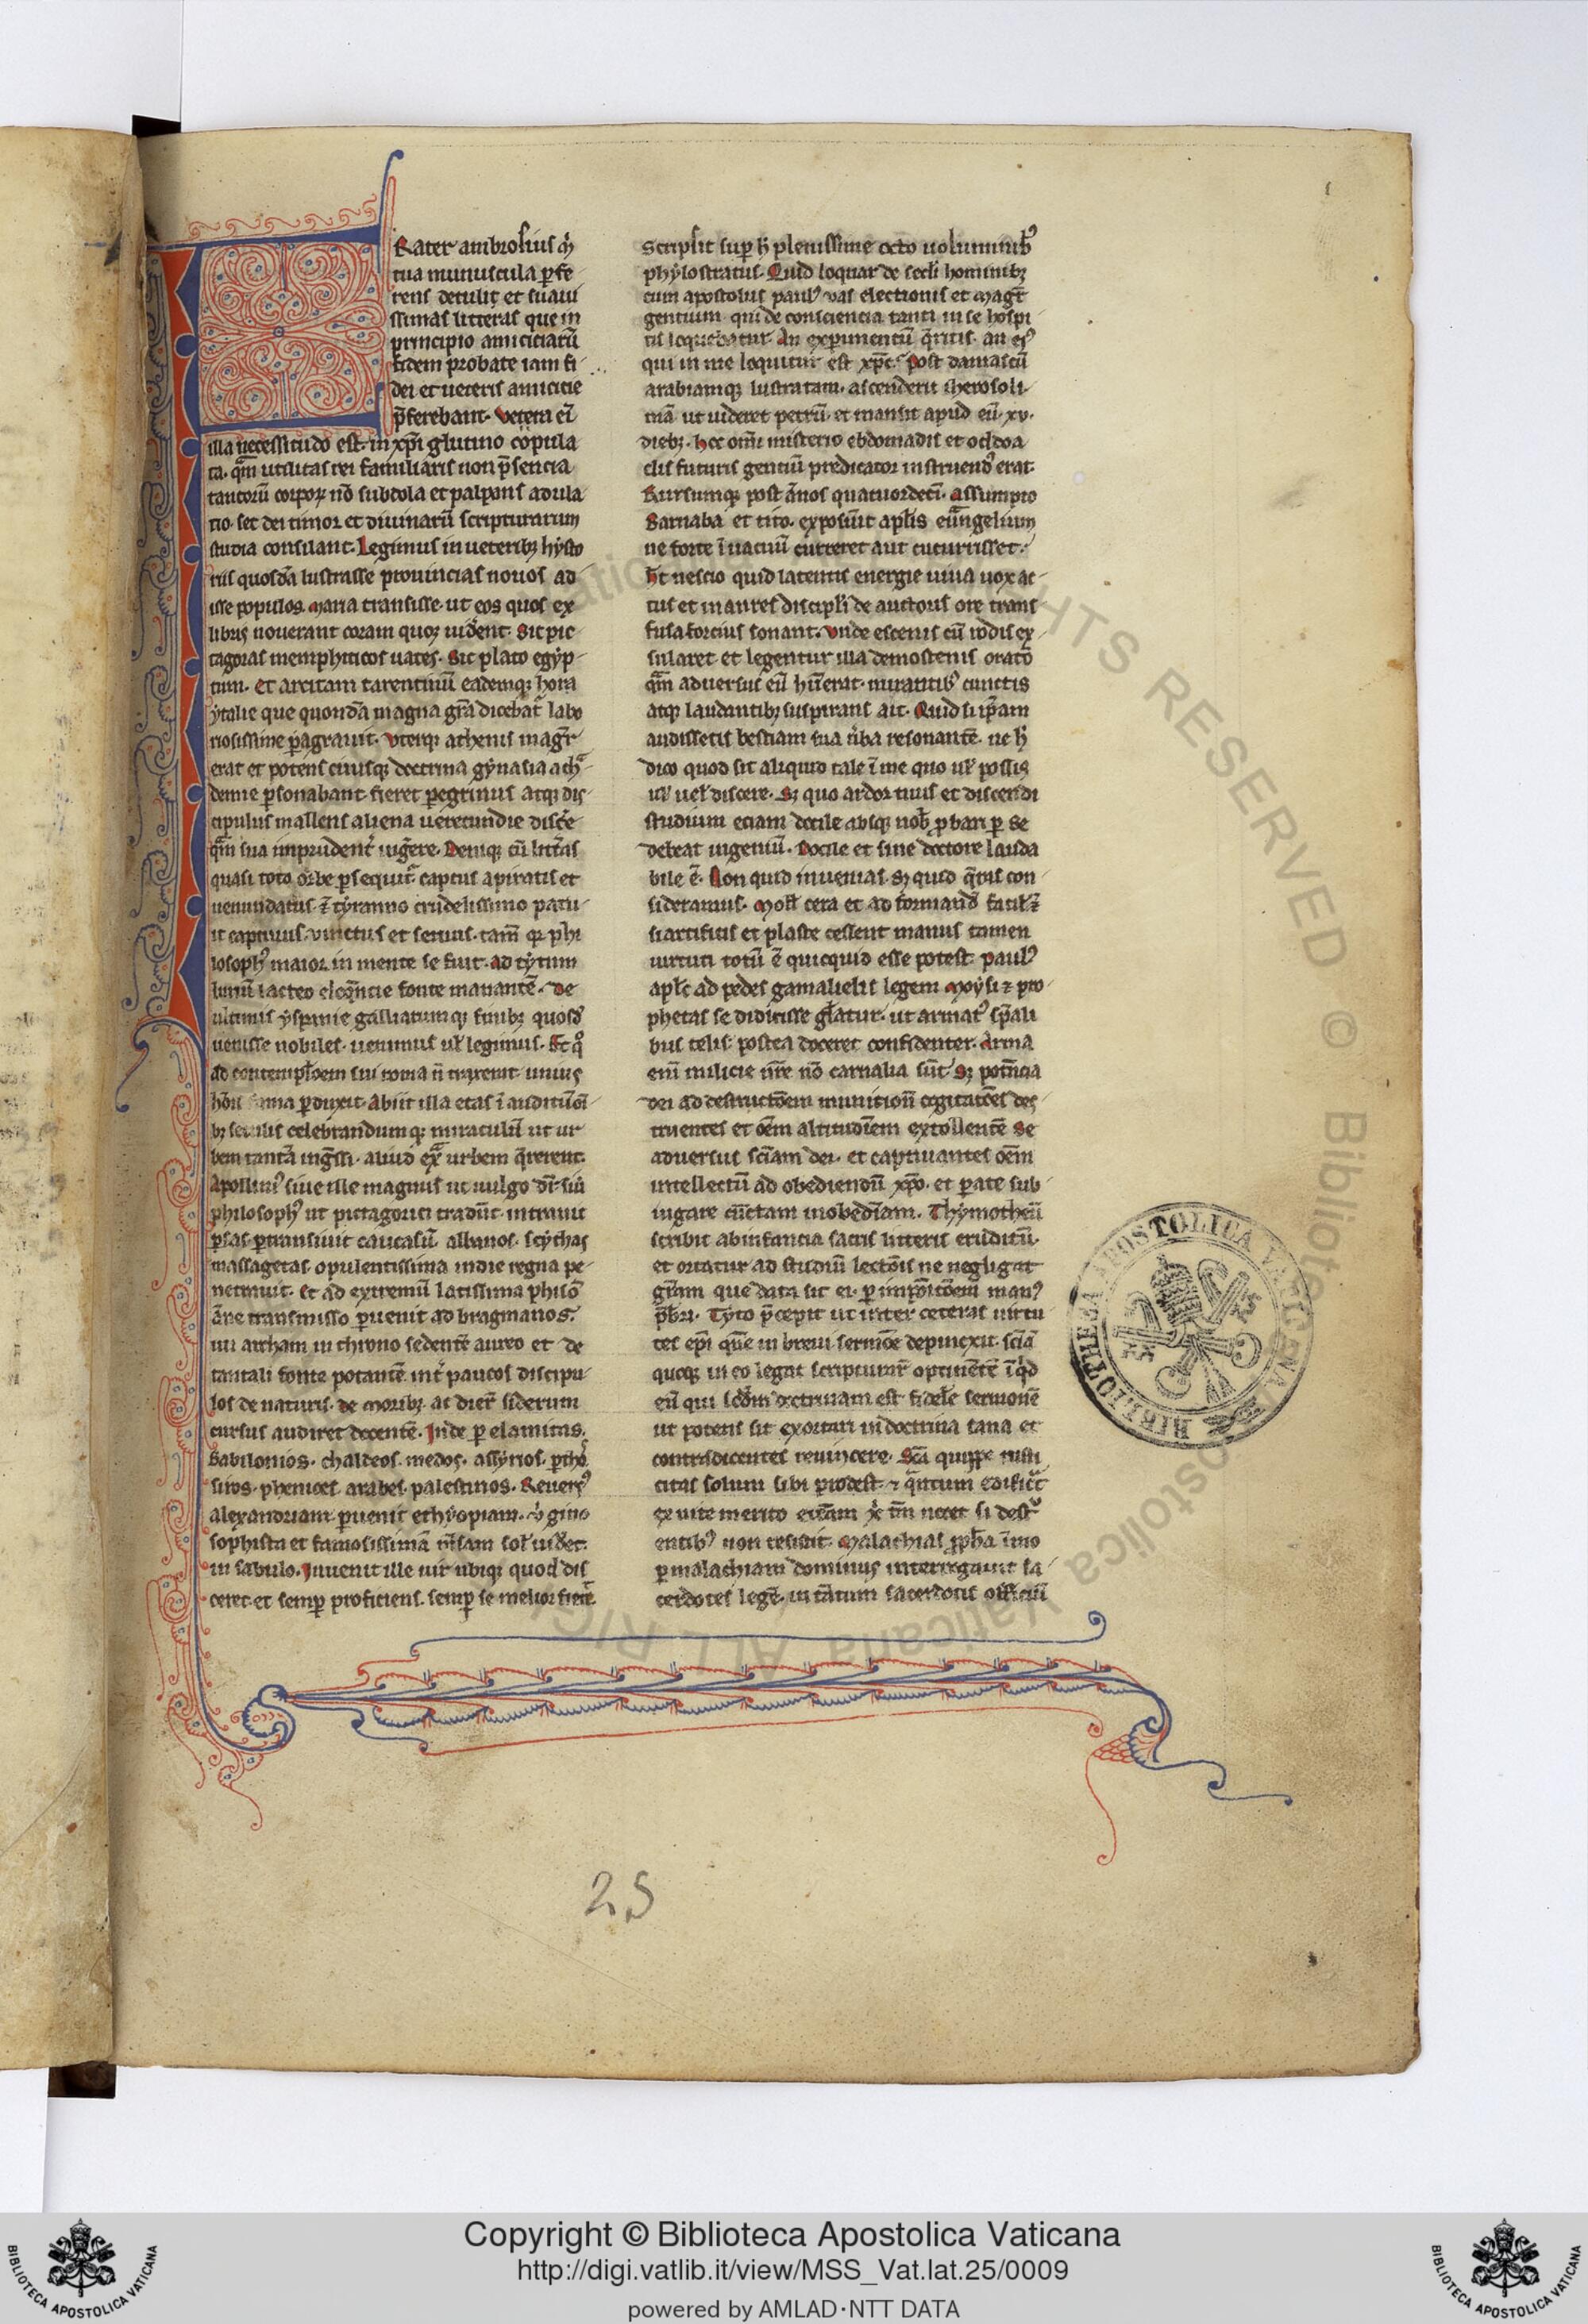 Rater ambrosius m̄
tua munuscula ꝑfe
rens detulit et suaui
ssimas litteras que in
principio amiciciarū
fidem probate iam fi
dei et ueteris amicitie
p̄ferebant. Vetera eī
illa necessitudo est. in xp̄i glutino copula
ta. qm̄ utilitas rei familiaris non p̄sencia
tantorū corpoꝝ nō subdola et palpans adula
tio. set dei timor et diuinarū scripturarum
studia consilant. Legimus in ueteribꝫ hysto
riis quosdā lustrasse prouincias nouos ad
isse populos. maria transisse. ut eos quos ex
libris nouerant coram quoꝫ uiderent. Sic pic
tagoras memphiticos uates. Sic plato egyp
tum. et arcitam tarentinū eademqꝫ hora
ytalie que quondā magna grā dicebat labo
riosissime ꝑagrauit. Vt erqꝫ athenis magr̄
erat et potens cuiusqꝫ doctrina gynasia acha
demie ꝑsonabant. fieret ꝑegrinus atqꝫ dis
cipulus mallens aliena uerecundie discē
qm̄ sua imprudent̄ ingere. Deniqꝫ cū litt̄as
quasi toto orbe ꝑsequit̄ captus a piratis et
uenundatus. ⁊ tyranno crudelissimo paru
it captiuus. uinctus et seruus. tam̄ qꝛ phi
losophꝰ maior in mente se fuit. ad tytum
liuiū lacteo eloquencie fonte manantē. de
ultimis yspanie galliarumqꝫ finibꝫ quosdā
uenisse nobiles. uenimus ul̄ legimus. Et qͦ
ad contemplōem sui roma n̄ traxerat. unius
hōis fama ꝑduxit. Abuit illa etas ī auditū oī
bꝫ seculis celebrandumqꝫ miraculū ut ur
bem tantā ingressi. aliud ex̄ urbem q̄rerent.
Apollinꝰ siue ille magnus ut uulgo dr̄. siū
philosophꝰ ut pictagorici tradūt. intrauit
ꝑsas. ꝑtransiuit caucasū. albanos. scythas
massagetas. opulentissima indie regna pe
netrauit. Et ad extremū latissimo phisō
āne transmisso ꝑuenit ad bragmanos.
ut archam in throno sedentē aureo et de
tantali fonte potantē. int̄ paucos discipu
los de naturis. de moribꝫ. ac dierū siderum
cursus audiret docentē. Inde ꝑ elamitas.
Babilonios. chaldeos. medos. assyrios. ꝑthos
siros. phenices. arabes. palestinos. Reuersꝰ
alexandriam. ꝑuenit ethyopiam. ut gino
sophista et famosissimā m̄sam sol̄ uideret
in sabulo. Inuenit ille uir ubiqꝫ quod dis
ceret et semꝑ proficiens. semꝑ se melior fieret.
scripsit suꝑ h̄ plenissime octo uoluminibꝰ
phylostratus. Quid loquar de secli hominibꝫ
cum apostolus paulꝰ uas electionis et magr̄
gentium. qui de consciencia tanti in se hospi
tis loquebatur. An exꝑimentū q̄ritis. an eiꝰ
qui in me loquitur est xp̄c. Post damascū
arabiamqꝫ lustratam. ascenderit iherosoli
mā ut uideret petrū. et mansit apud eū. xv.
diebꝫ. hoc enī misterio ebdomadis et ocdoa
dis futurus gentiū predicator instruendꝰ erat.
Rursumqꝫ post ānos quatuordecī. assumpto
Barnaba et tito. exposuit apl̄is euāngelium
ne forte ī uacuū curreret aut cucurrisset.
ht nescio quid latentis energie uiua uox ac
tus et in aures discipli de auctoris ore trans
fusa forcius sonant. Vnde escenis cū rodis ex
sularet et legeretur illa demostenis orato
qm̄ aduersus eū huerat. mirantibꝰ cunctis
atqꝫ laudantibꝫ suspirans ait. Quid si ipsam
audissetis bestiam sua uerba resonantē. ne h̄
dico quod sit aliquid tale ī me quo ul̄ possis
ul̄ uel̄ discere. Sꝫ quo ardor tuus et discendi
studium eciam docile absqꝫ nob̄ ꝓbari ꝑ se
debeat ingeniū. Docile et sine doctore lauda
bile ē. Non quid inuenias. sꝫ quid q̄ras con
sideramus. Mollis cera et ad formandū facilis
si artificis et plaste cessent manus tamen
uirtuti totū ē quicquid esse potest. paulꝰ
apl̄c ad pedes gamalielis legem moysi ⁊ pro
phetas se didicisse gl̄atur. ut armatꝰ sp̄ali
bus telis. postea doceret confidenter. Arma
enī milicie nr̄e nō carnalia sūt. Sꝫ potēncia
dei ad destructōem munitionū cogitatōes des
truentes et oēm altitudinem extollentē se
aduersus sciam dei. et captiuantes oēm
intellectū ad obediendū xp̄o. et ꝑate sub
iugare cūctam inobedīam. Thymotheū
scribit ab infancia sacris litteris eruditū.
et ortatur ad studiū lectōis ne negligat
grām que data sit ei. ꝑ impōitōem manꝰ
p̄bri. Tyto p̄cepit ut inter ceteras uirtu
tes ep̄i quē in breui sermōe depinxit. sciā
quoqꝫ in eo legat scripturarū optinentē ī qd
eū qui scdm doctrinam est fidele sermonē
ut potens sit exortari in doctrina sana et
contradicentes reuincere. Scā quippe rusti
citas solum sibi prodest. ⁊ quantum edificat
ex uite merito eccl̄am xp̄i tm̄ nocet si destru
entibꝰ non resistit. Malachias ꝓpha īmo
ꝑ malachiam dominus interrogauit sa
cerdotes legē. in tātum sacerdotis officiū
25
BIBLIOTHECA APOSTOLICA VATICANA
Copyright © Biblioteca Apostolica Vaticana
http://digi.vatlib.it/view/MSS_Vat.lat.25/0009
powered by AMLAD·NTT DATA